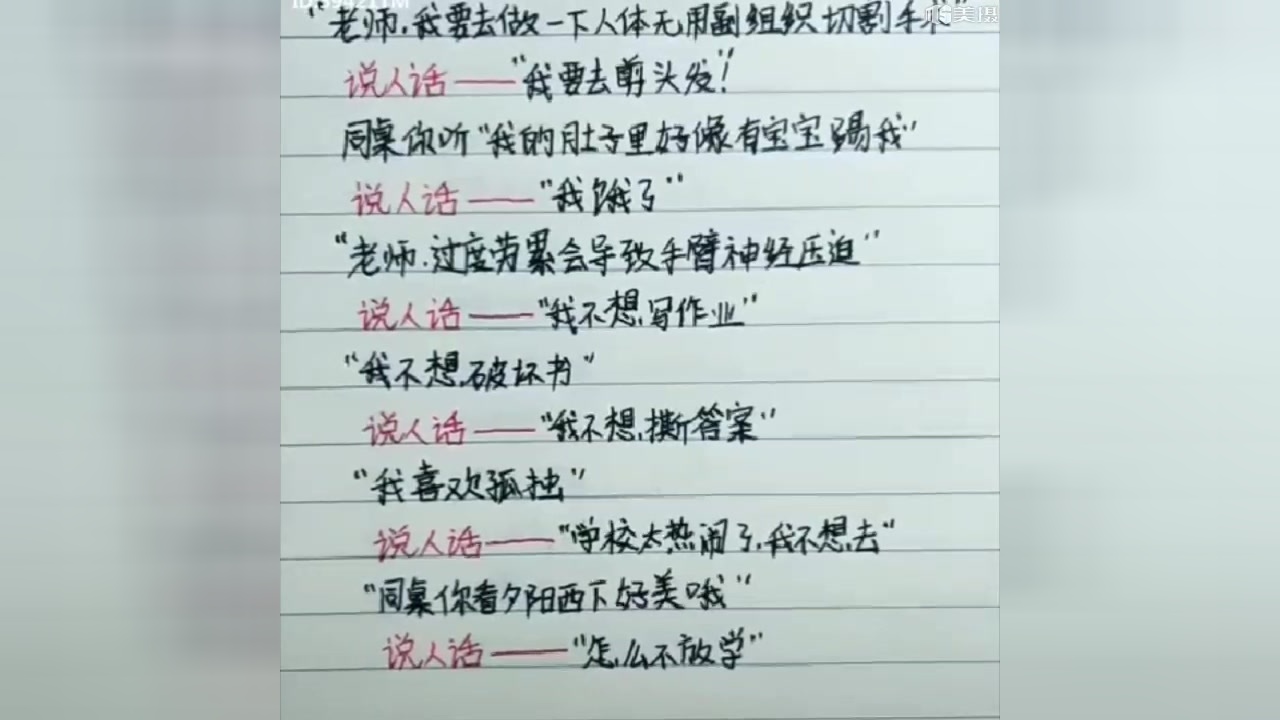 "老师.我要去做一下人体无用副组织切割手术"
说人话——"我要去剪头发!"
同桌你听"我的肚子里好像有宝宝踢我"
说人话——"我饿了"
"老师.过度劳累会导致手臂神经压迫"
说人话——"我不想写作业"
"我不想破坏书"
说人话——"我不想撕答案"
"我喜欢孤独"
说人话——"学校太热闹了,我不想去"
"同桌你看夕阳西下好美哦"
说人话——"怎么不放学"